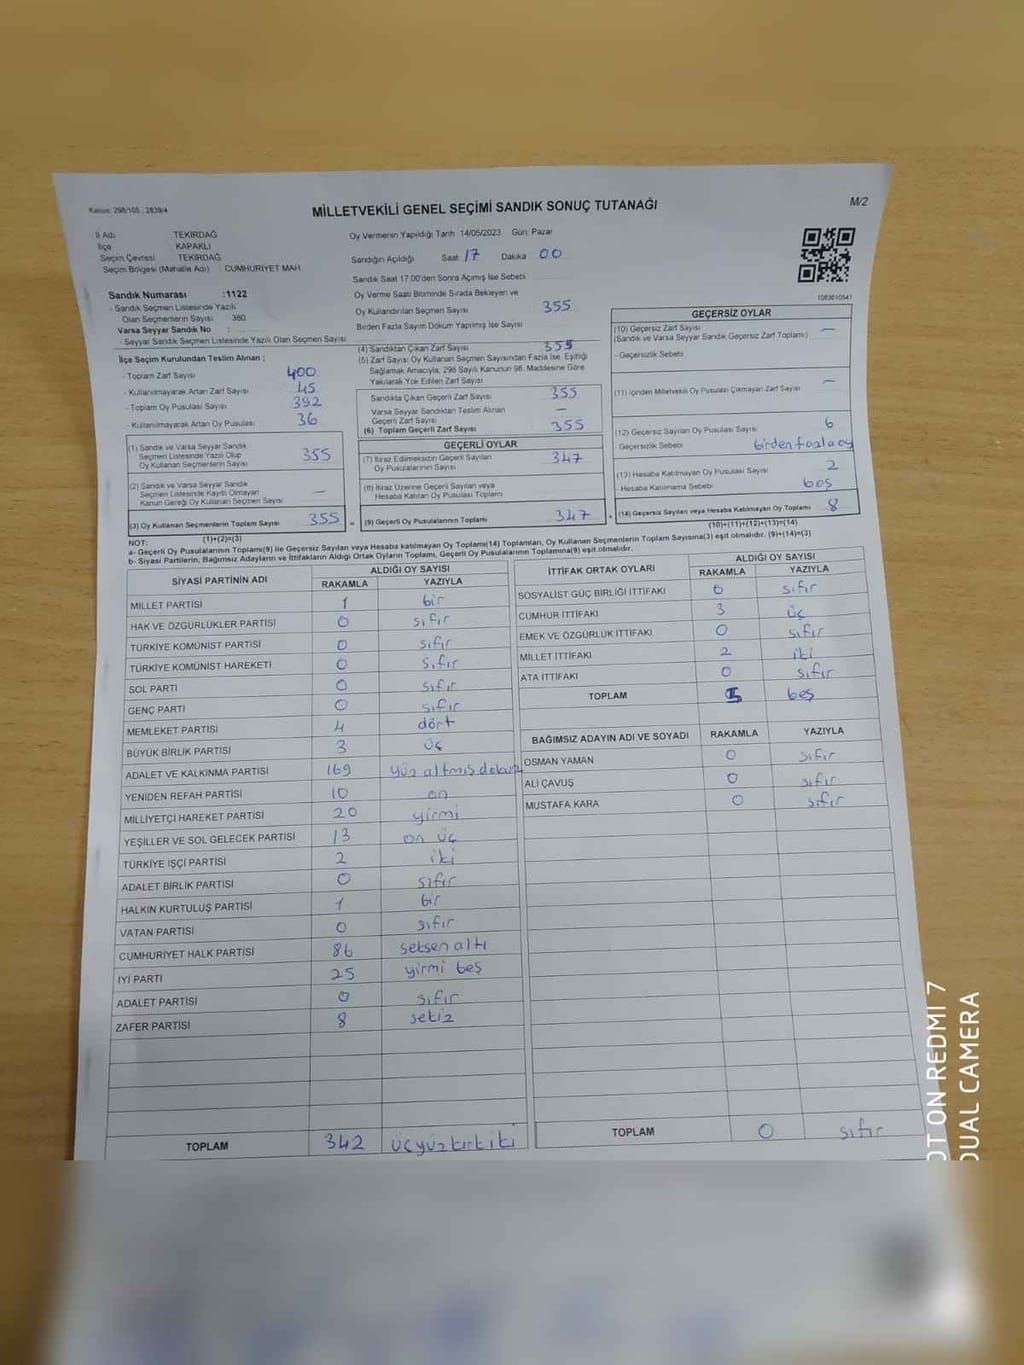 Kanun: 298/105 , 2839/4
MİLLETVEKİLİ GENEL SEÇİMİ SANDIK SONUÇ TUTANAĞI
M/2
İl Adı TEKİRDAĞ
İlçe KAPAKLI
Seçim Çevresi TEKİRDAĞ
Seçim Bölgesi (Mahalle Adı) CUMHURİYET MAH
Sandık Numarası :1122
- Sandık Seçmen Listesinde Yazılı
Olan Seçmenlerin Sayısı 380
Varsa Seyyar Sandık No :
- Seyyar Sandık Seçmen Listesinde Yazılı Olan Seçmen Sayısı
İlçe Seçim Kurulundan Teslim Alınan ;
- Toplam Zarf Sayısı 400
- Kullanılmayarak Artan Zarf Sayısı 45
- Toplam Oy Pusulası Sayısı 392
- Kullanılmayarak Artan Oy Pusulası 36
(1) Sandık ve Varsa Seyyar Sandık
Seçmen Listesinde Yazılı Olup
Oy Kullanan Seçmenlerin Sayısı 355
(2) Sandık ve Varsa Seyyar Sandık
Seçmen Listesinde Kayıtlı Olmayan
Kanun Gereği Oy Kullanan Seçmen Sayısı —
(3) Oy Kullanan Seçmenlerin Toplam Sayısı 355
(1)+(2)=(3)
Oy Vermenin Yapıldığı Tarih :14/05/2023 Gün: Pazar
Sandığın Açıldığı Saat: 17 Dakika 00
Sandık Saat 17:00'den Sonra Açımış İse Sebebi
Oy Verme Saati Bitiminde Sırada Bekleyen ve
Oy Kullandırılan Seçmen Sayısı 355
Birden Fazla Sayım Döküm Yapılmış İse Sayısı
(4) Sandıktan Çıkan Zarf Sayısı 355
(5) Zarf Sayısı Oy Kullanan Seçmen Sayısından Fazla İse, Eşitliği
Sağlamak Amacıyla, 298 Sayılı Kanunun 98. Maddesine Göre
Yakılarak Yok Edilen Zarf Sayısı
Sandıkta Çıkan Geçerli Zarf Sayısı 355
Varsa Seyyar Sandıktan Teslim Alınan
Geçerli Zarf Sayısı —
(6) Toplam Geçerli Zarf Sayısı 355
GEÇERLİ OYLAR
(7) İtiraz Edilmeksizin Geçerli Sayılan
Oy Pusulalarının Sayısı 347
(8) İtiraz Üzerine Geçerli Sayılan veya
Hesaba Katılan Oy Pusulası Toplamı
= (9) Geçerli Oy Pusulalarının Toplamı 347
1083610541
GEÇERSİZ OYLAR
(10) Geçersiz Zarf Sayısı —
(Sandık ve Varsa Seyyar Sandık Geçersiz Zarf Toplamı)
- Geçersizlik Sebebi
(11) İçinden Milletvekili Oy Pusulası Çıkmayan Zarf Sayısı —
(12) Geçersiz Sayılan Oy Pusulası Sayısı 6
Geçersizlik Sebebi birden fazla oy
(13) Hesaba Katılmayan Oy Pusulası Sayısı 2
Hesaba Katılmama Sebebi boş
+ (14) Geçersiz Sayılan veya Hesaba Katılmayan Oy Toplamı 8
(10)+(11)+(12)+(13)=(14)
NOT:
a- Geçerli Oy Pusulalarının Toplamı(9) ile Geçersiz Sayılan veya Hesaba katılmayan Oy Toplamı(14) Toplamları, Oy Kullanan Seçmenlerin Toplam Sayısına(3) eşit olmalıdır. (9)+(14)=(3)
b- Siyasi Partilerin, Bağımsız Adayların ve İttifakların Aldığı Oyların Toplamı, Geçerli Oy Pusulalarının Toplamına(9) eşit olmalıdır.
SİYASİ PARTİNİN ADI ALDIĞI OY SAYISI
RAKAMLA YAZIYLA
MİLLET PARTİSİ 1 bir
HAK VE ÖZGÜRLÜKLER PARTİSİ 0 sıfır
TÜRKİYE KOMÜNİST PARTİSİ 0 sıfır
TÜRKİYE KOMÜNİST HAREKETİ 0 sıfır
SOL PARTİ 0 sıfır
GENÇ PARTİ 0 sıfır
MEMLEKET PARTİSİ 4 dört
BÜYÜK BİRLİK PARTİSİ 3 üç
ADALET VE KALKINMA PARTİSİ 169 yüz altmış dokuz
YENİDEN REFAH PARTİSİ 10 on
MİLLİYETÇİ HAREKET PARTİSİ 20 yirmi
YEŞİLLER VE SOL GELECEK PARTİSİ 13 on üç
TÜRKİYE İŞÇİ PARTİSİ 2 iki
ADALET BİRLİK PARTİSİ 0 sıfır
HALKIN KURTULUŞ PARTİSİ 1 bir
VATAN PARTİSİ 0 sıfır
CUMHURİYET HALK PARTİSİ 86 seksen altı
İYİ PARTİ 25 yirmi beş
ADALET PARTİSİ 0 sıfır
ZAFER PARTİSİ 8 sekiz
TOPLAM 342 üçyüzkırkiki
İTTİFAK ORTAK OYLARI ALDIĞI OY SAYISI
RAKAMLA YAZIYLA
SOSYALİST GÜÇ BİRLİĞİ İTTİFAKI 0 sıfır
CUMHUR İTTİFAKI 3 üç
EMEK VE ÖZGÜRLÜK İTTİFAKI 0 sıfır
MİLLET İTTİFAKI 2 iki
ATA İTTİFAKI 0 sıfır
TOPLAM 5 beş
BAĞIMSIZ ADAYIN ADI VE SOYADI RAKAMLA YAZIYLA
OSMAN YAMAN 0 sıfır
ALİ ÇAVUŞ 0 sıfır
MUSTAFA KARA 0 sıfır
TOPLAM 0 sıfır
OT ON REDMI 7
DUAL CAMERA